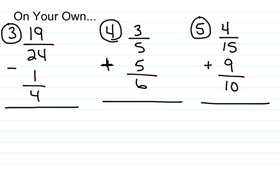 On Your Own...
③ 19/24 - 1/4
④ 3/5 + 5/6
⑤ 4/15 + 9/10